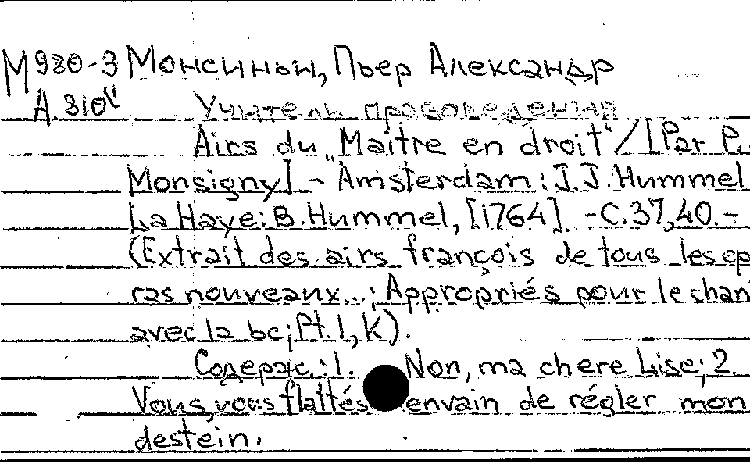 М980-3 Монсиньи, Пьер Александр
А.310
Учитель правоведения
Airs du „Maitre en droit“/[Par P.
Monsigny] - Amsterdam: J.J. Hummel
La Haye: B. Hummel, [1764]. -С.37,40.-
(Extrait des airs françois de tous les op
ras nouveaux...; Appropriés pour le chan
avec la bc; Pt.1, K).
Содерж.: 1. Non, ma chere Lise; 2
Vous, vous flattés envain de régler mon
destein.